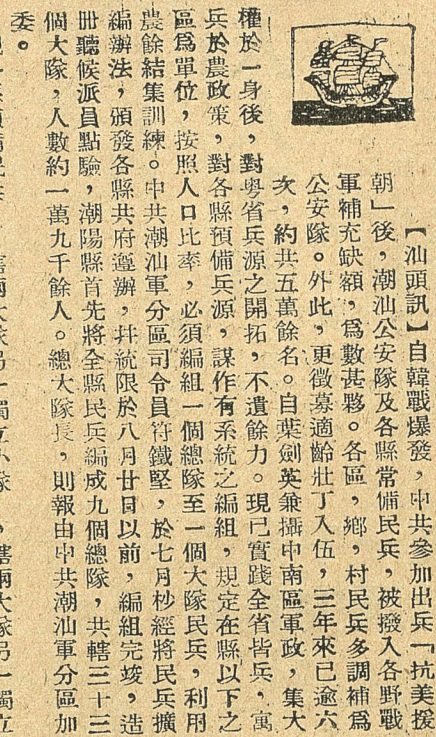 【汕頭訊】自韓戰爆發，中共參加出兵「抗美援
朝」後，潮汕公安隊及各縣常備民兵，被撥入各野戰
軍補充缺額，爲數甚夥。各區，鄉，村民兵多調補爲
公安隊。外此，更徵募適齡壯丁入伍，三年來已逾六
次，約共五萬餘名。自葉劍英兼攝中南區軍政，集大
權於一身後，對粵省兵源之開拓，不遺餘力。現已實踐全省皆兵，寓
兵於農政策，對各縣預備兵源，謀作有系統之編組，規定在縣以下之
區爲單位，按照人口比率，必須編組一個總隊至一個大隊民兵，利用
農餘結集訓練。中共潮汕軍分區司令員符鐵堅，於七月杪經將民兵擴
編辦法，頒發各縣共府遵辦，幷統限於八月廿日以前，編組完竣，造
册聽候派員點驗，潮陽縣首先將全縣民兵編成九個總隊，共轄三十三
個大隊，人數約一萬九千餘人。總大隊長，則報由中共潮汕軍分區加
委。
轄兩大隊另一獨立 轄兩大隊另一獨立